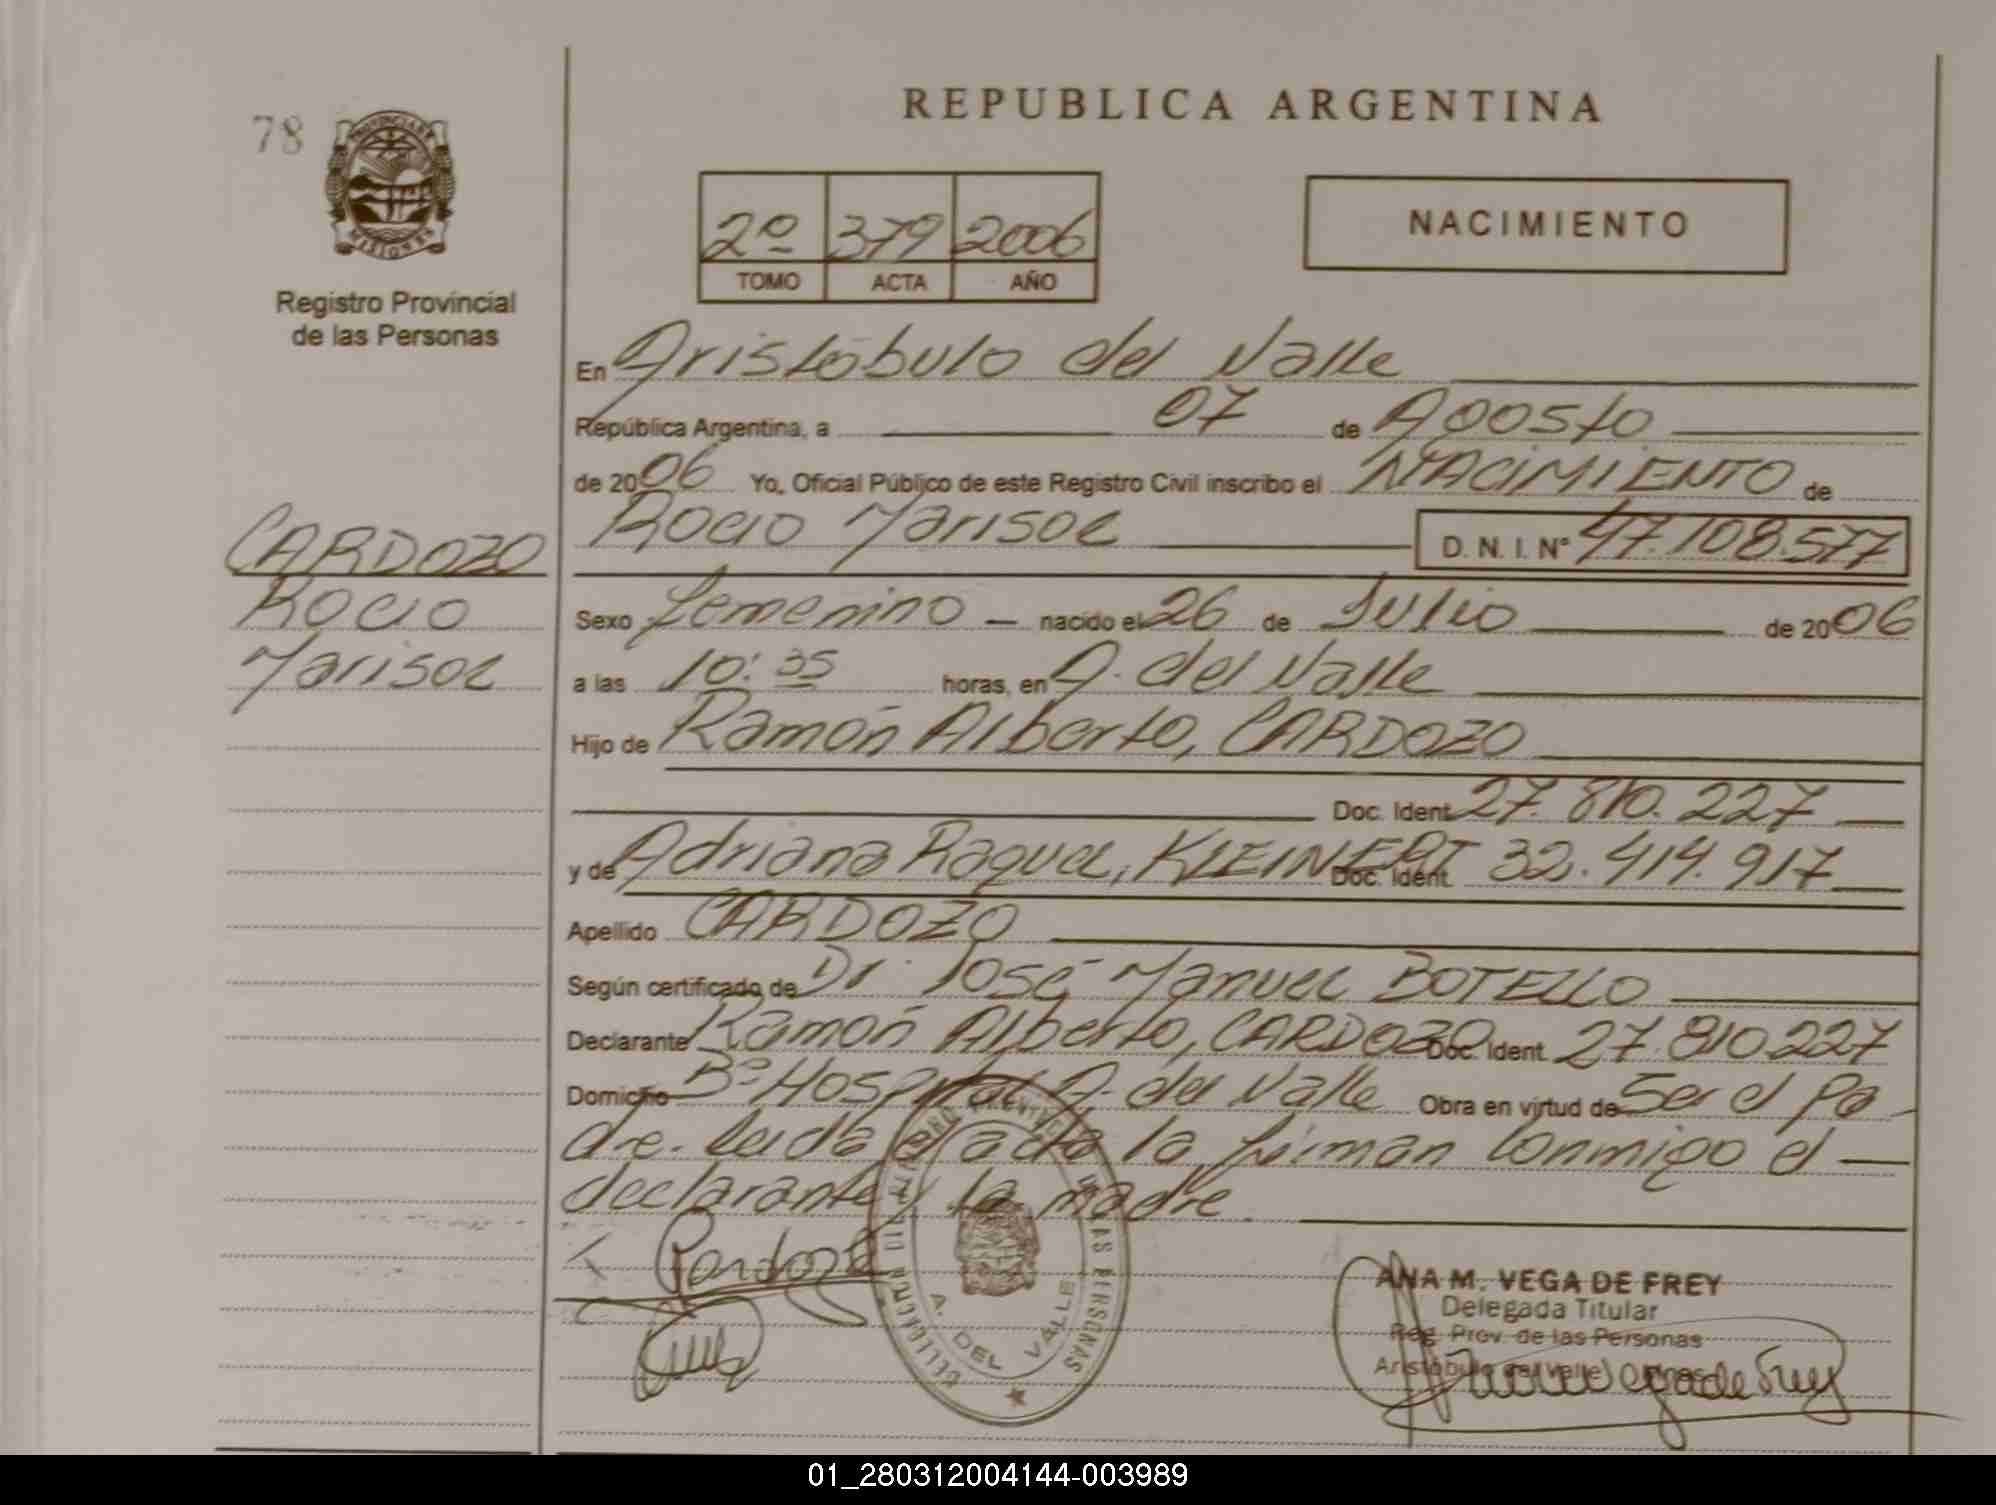 78
PROVINCIA DE
MISIONES
Registro Provincial
de las Personas
CARDOZO
Rocio
Marisol
REPUBLICA ARGENTINA
2º 379 2006
TOMO ACTA AÑO
NACIMIENTO
En Aristóbulo del Valle
República Argentina, a 07 de Agosto
de 2006 Yo, Oficial Público de este Registro Civil inscribo el NACIMIENTO de
Rocio Marisol D. N. I. N° 47.108.577
Sexo Femenino nacido el 26 de Julio de 2006
a las 10:35 horas, en A. del Valle
Hijo de Ramón Alberto, CARDOZO
Doc. Ident. 27.810.227
y de Adriana Raquel, KLEINERT Doc. Ident. 32.414.917
Apellido CARDOZO
Según certificado de Dr. José Manuel BOTELLO
Declarante Ramón Alberto, CARDOZO Doc. Ident. 27.810.227
Domicilio Bº Hospital A. del Valle Obra en virtud de Ser el Pa-
dre. Leida el acta la firman conmigo el
declarante y la madre
Cardozo
A. DEL VALLE
LAS PERSONAS
ANA M. VEGA DE FREY
Delegada Titular
Reg. Prov. de las Personas
Aristóbulo del Valle
01_280312004144-003989